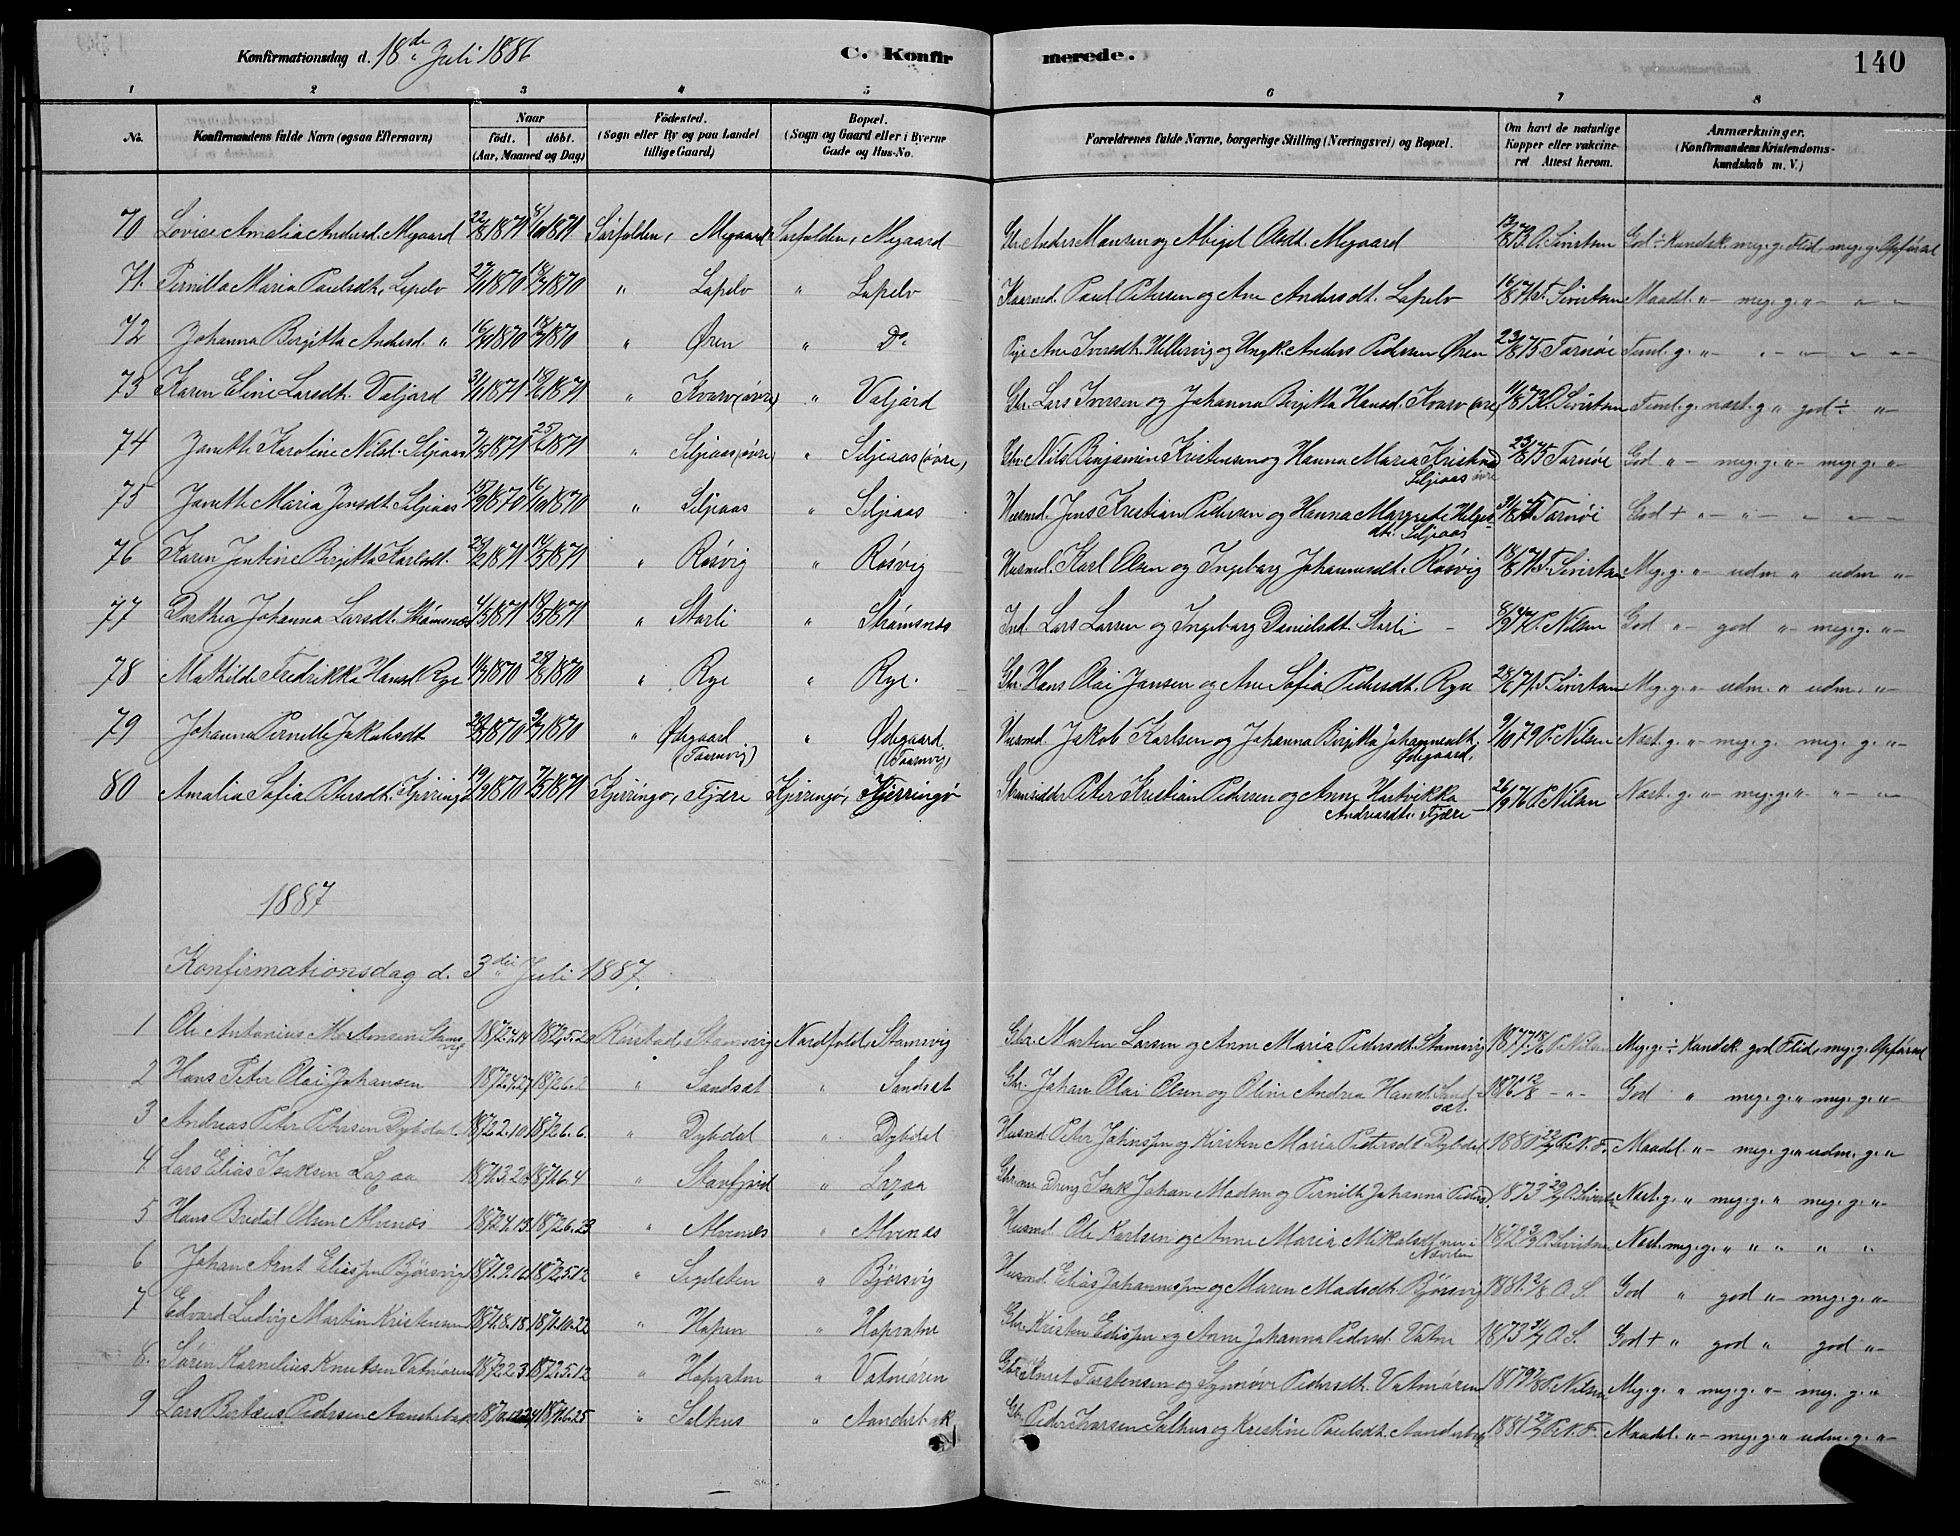 Konfirmationsdag d. 18de Juli 1886
C. Konfirmerede.
140
1 2 3 4 5 6 7 8
No.
Konfirmandens fulde Navn (ogsaa Efternavn)
Naar
født. døbt.
(Aar, Maaned og Dag)
Fødested.
(Sogn eller By og paa Landet
tillige Gaard)
Bopæl.
(Sogn og Gaard eller i Byerne
Gade og Hus-No.
Forældrenes fulde Navne, borgerlige Stilling (Næringsvei) og Bopæl.
Om havt de naturlige
Kopper eller vakcine-
ret Attest herom.
Anmærkninger.
(Konfirmandens Kristendoms-
kundskab m. V.)
70 Lovise Amalia Andersd. Mygaard 1871 1871 Sørfolden, Mygaard Sørfolden, Mygaard Gbr. Anders Hansen og Abigel Olsdt. Mygaard O. Sivertsen God ÷ Kundsk. meg. g. Flid, meg. g. Opførsel
71. Pernilla Maria Paulsdt. Lapelv 1870 1870 " Lapelv " Lapelv Kaarmd. Paul Petersen og Ane Andersdt. Lapelv Sivertsen Maadl. "- meg. g. "- "-
72 Johanna Birgitta Andersd. " 1870 1870 " Øren " Do Pige Ane Iversdt. Hellervig og Ungk. Anders Pedersen Øren 23/8 75 Tarnøi Teml. g. "-
73 Karen Eline Larsdt. Valjord 1871 1871 " Kvarv (øvre) " Valjord Gbr. Lars Iversen og Johanna Birgitta Hansd. Kvarv (øvre) O. Sivertsen Teml. g. næst. g " god ÷ "-
74 Janette Karoline Nilsd. Siljeaas 1871 1871 " Siljeaas (øvre) " Siljeaas (øvre) Gbr. Nils Benjamin Kristensen og Hanna Maria Siljeaas øvre 23/8 75 Tarnøi God "- meg. g. "- meg. g. "-
75 Janette Maria Jensdt. Siljeaas 1870 1870 " Siljeaas " Siljeaas Husmd. Jens Kristian Pedersen og Hanna Margrete Helges-
dt. Siljeaas Tarnøi God + "-
76 Karen Justine Birgitta Karlsdt. 1871 1871 " Røsvig " Røsvig Husmd. Karl Olsen og Ingeborg Johannesdt. Røsvig Sivertsen Meg. g. "- udm " udm "-
77 Dorthea Johanna Larsdt. Strømsnes 1871 1871 " Storli " Strømsnes Ind. Lars Larsen og Ingeborg Danielsdt. Storli P. Nilsen God "- god "- meg. g. "-
78 Mathilde Fredrikka Hansd. Rye 1870 1870 " Rye " Rye. Gbr. Hans Olai Jansen og Ane Sofia Pedersdt. Rye Sivertsen Meg. g. "- udm. " udm. "-
79 Johanna Pernille Jakobsdt 1870 1870 " Ødegaard
(Taarnvig) " Ødegaard
(Taarnvig) Husmd. Jakob Karlsen og Johanna Birgitta Johannesdt.
Ødegaard 9/10 79 P. Nilsen Næst. g. "- meg. g. meg. g. "-
80 Amalia Sofia Petersdt. Kjerringø 1870 1871 Kjerringø, Fjære Kjerringø, Kjerringø Strandsidder Peter Kristian Pedersen og Anne Hartvikka
Andreasdt. Fjære 26/9 76 P. Nilsen Næst. g. "- meg. g. "- "-
1887
Konfirmationsdag d. 3die Juli 1887.
1 Ole Antonius Mortensen Stamsvig 1872.1.14 1872.5.20 Rørstad, Stamsvig Nordfold, Stamsvig Gbr. Morten Larsen og Anne Maria Pedersdt. Stamsvig 1877 P. Nilsen Meg. g. ÷ Kundsk. god Flid, meg. g. Opførsel
2 Hans Peter Olai Johansen 1872.4.27 1872.6. " Sandsæt " Sandsæt Gbr. Johan Olai Olsen og Oline Andrea Hansd. Sand-
sæt. 1876 12/8 -"- God " meg. g. " meg. g. "-
3 Andreas Peter Petersen Dybdal 1872.2.10 1872.6.6. " Dybdal " Dybdal Husmd. Peter Johnsen og Kirsten Maria Petersdt Dybdal 1880 Maadl. "- meg. g. " udm. g. "
4 Lars Elias Isaksen Laxaa 1871.3.2 1871.6.4 " Storfjord " Laxaa Isak Johan Madsen og Pernille Johanna Pedersd. 1873 O. Sivertsen Næst. g. " meg. g. " meg. g. "-
5 Hans Bredal Olsen Alvenes 1872.4.13 1872.6.23 " Alvenes " Alvenes Husmd. Ole Karlsen og Anne Maria Mikalsdt 1872 O. Sivertsen Næst. meg. g. " " " " "
6 Johan Arnt Eliassen Bjørsvig 1871.9.16 1872.5.12 " Segelsten " Bjørsvig Husmd. Elias Johannessen og Maren Madsdt. Bjørsvig 1881. O. S. God " god "- meg. g. "-
7 Edvard Ludvig Martin Kristensen 1871.8.18 1871.10.22 " Hopen " Hopvatne Gbr. Kristen Ediassen og Anne Johanna Pedersd. Vatne 1873 O. S. God + " god " god "-
8. Søren Kornelius Knutsen Vatmøren 1872.2.3 1872.5.12 " Hopvatne " Vatmøren Gbr. Knut Torstensen og Synnøve Pedersdt. Vatmøren 1879 P. Nilsen Meg. g. " meg. g. "- meg. g. "
9 Lars Bertæus Pedersen Aanderbak 1871.6.25 " Solhus " Aanderbak Gbr. Peder Larsen Solhus og Kristine Paulsdt. Aanderbak 1881 Maadl. "- meg. g. " udm. g. "-